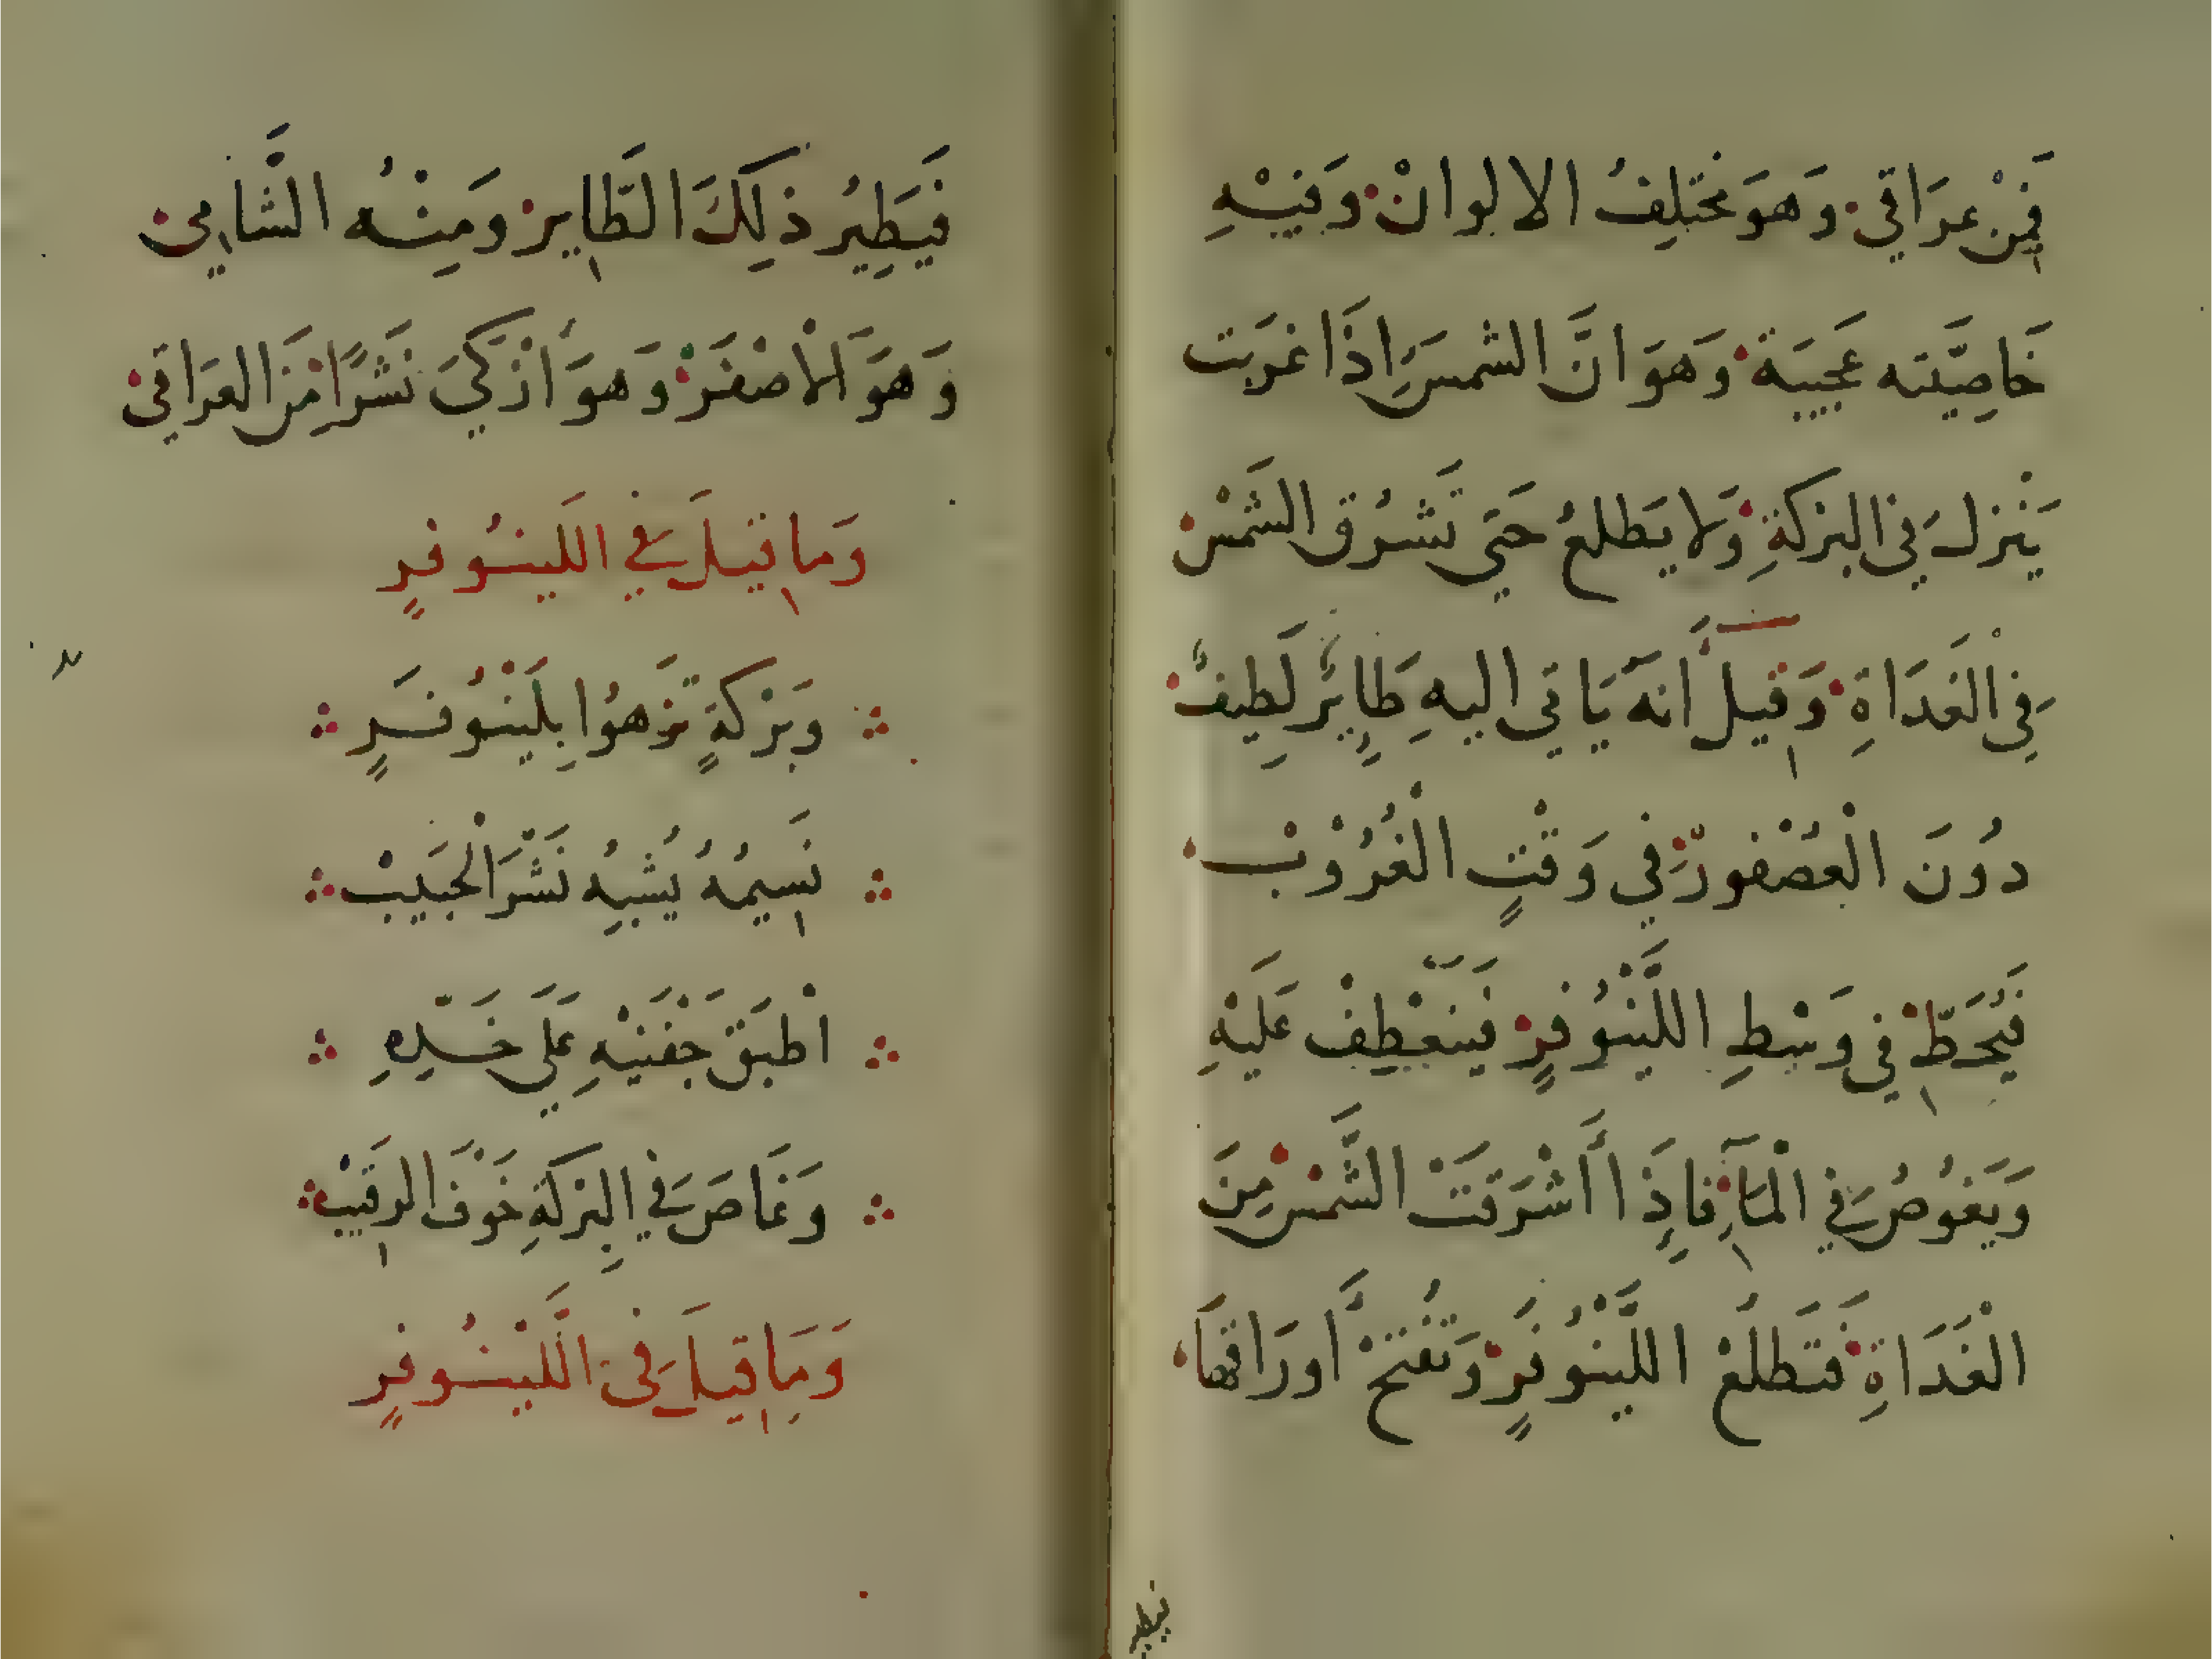 فَمِنْ عِرَاقِي وَهوَ مُختَلِفُ الالوانْ وَفِيْهِ
خَاصِيَّته عَجيبَة وَهوَ انَّ الشمسَ اِذَا غرَبَت
يَنْزل فِي البركَةِ وَلا يَطلعُ حَتي تَشرُق الشَمْس
فِي الغَدَاةِ وَقيلَ أنهَ يَاتي اليهِ طَايِرٌ لَطِيفٌ
دُونَ الْعُصْفورْ فِي وَقْتٍ الْغُرُوْبْ
فَيُحَطّ فِي وَسْطِ اللَّيْنُوفرٍ فَينعْطِفْ عَلَيْهِ
وَيَغوُصُ فِي الْمَآءِ فاِذَا أَشْرَقَتْ الشَّمْس مِنَ
الْغَدَاةِ فتَطلَعْ اللَّيْنُوفَرٍ وَتُفتحْ أَورَاقهَا
فيطير
فَيَطِيُر ذلِكَ الطَّايِر وَمِنْهُ الشَّامِي
وَهوَ الْاصْفَرْ وَهوَ أَذْكَيَ نَشَرًا مِنَ العرَاقِي
وَما قيلَ فِي اللَينُوفرٍ
وبَركَةٍ تَزهوُا بِلَيْنُوفَرٍ
نَسيمُهُ يُشبِهُ نَشْرَ الْحَبَيبْ
اْطبَقَ جَفْنَيْهِ عَلَي خَدِّهِ
وَغَاصَ فِي البِركَةِ خَوْفَ الرقَيبْ
وَمَا قِيلَ فِي اللَّيْنُوفرٍ